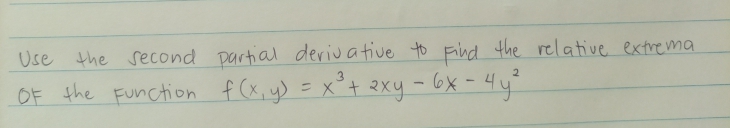 Use the second partial derivative to Find the relative extrema
OF the Function f(x,y) = x³ + 2xy - 6x - 4y²